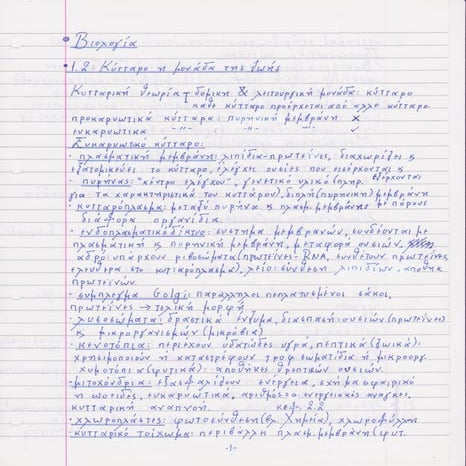 • Βιολογία
• 1.2: Κύτταρο η μονάδα της ζωής
Κυτταρική θεωρία δομική & λειτουργική μονάδα: κύτταρο
κάθε κύτταρο προέρχεται από άλλο κύτταρο
προκαρυωτικά κύτταρα: πυρηνική μεμβράνη ✗
ευκαρυωτικά -"- : -"- ✓
Ευκαρυωτικό κύτταρο:
· πλασματική μεμβράνη: λιπίδια-πρωτεΐνες, διαχωρίζει ς
εξατομικεύει το κύτταρο, ελέγχει ουσίες που εισέρχονται ς
· πυρήνας: "κέντρο ελέγχου", γενετικό υλικό (πληρ. εξέρχονται
για τα χαρακτηριστικά του κυττάρου), διπλή (πυρηνική) μεμβράνη
· κυτταρόπλασμα: μεταξύ πυρήνα ς πλασμ. μεμβράνης με πόρους
διάφορα οργανίδια.
· ενδοπλασματικό δίκτυο: σύστημα μεμβρανών, συνδέονται με
πλασματική ς πυρηνική μεμβράνη, μεταφορά ουσιών,
αδρό: υπάρχουν ριβοσώματα (πρωτεΐνες - RNA, συνθέτουν πρωτεΐνες,
ελεύθερα στο κυτταρόπλασμα), λείο: σύνθεση λιπιδίων, αποθήκ.
πρωτεϊνών.
· σύμπλεγμα Golgi: παράλληλοι πεπλατυσμένοι σάκοι,
πρωτεΐνες → τελική μορφή
· λυσοσώματα: δραστικά ένζυμα, διάσπαση: ουσιών (πρωτεΐνες)
ς μικροοργανισμών (μικρόβια)
· κενοτόπια: περιέχουν υδατώδες υγρό, πεπτικά (ζωικά):
χρησιμοποιούν ή καταστρέφουν τροφ. σωματίδια ή μικροοργ.
χυμοτόπια (φυτικά): αποθήκες θρεπτικών ουσιών.
· μιτοχόνδρια: εξασφαλίζουν ενέργεια, σχήμα σφαιρικό
ή ωοειδές, ευκαρυωτικά, αριθμός: α. ενεργειακές ανάγκες,
κυτταρική αναπνοή. κεφ. 2.2
· χλωροπλάστες: φωτοσύνθεση (βλ. Χημεία), χλωροφύλλη
· κυτταρικό τοίχωμα: περιβάλλει πλασμ. μεμβράνη (φυτ.
-1-